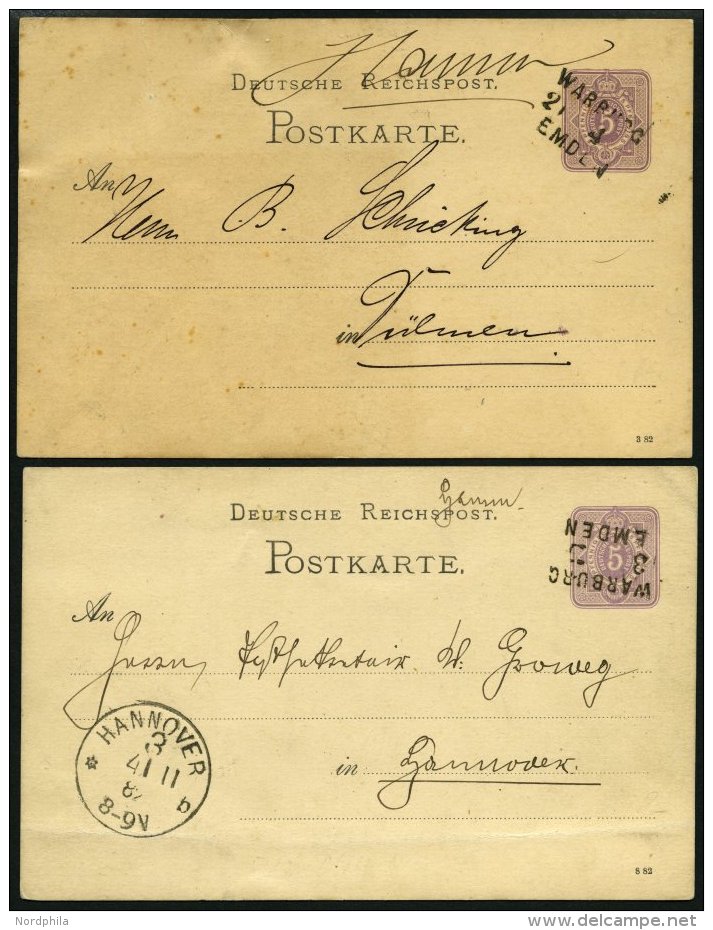 Hamm
DEUTSCHE REICHSPOST.
POSTKARTE.
5
WARBURG
21
EMDEN
An
Herrn B. Schücking
in Dülmen
3 82
Hamm
DEUTSCHE REICHSPOST.
POSTKARTE.
5
WARBURG
3 11
EMDEN
An
Herrn Postsekretair W. Groweg
in Hannover.
HANNOVER
3
4 11
82
8-9N
b
8 82
Nordphila
delcampe.net